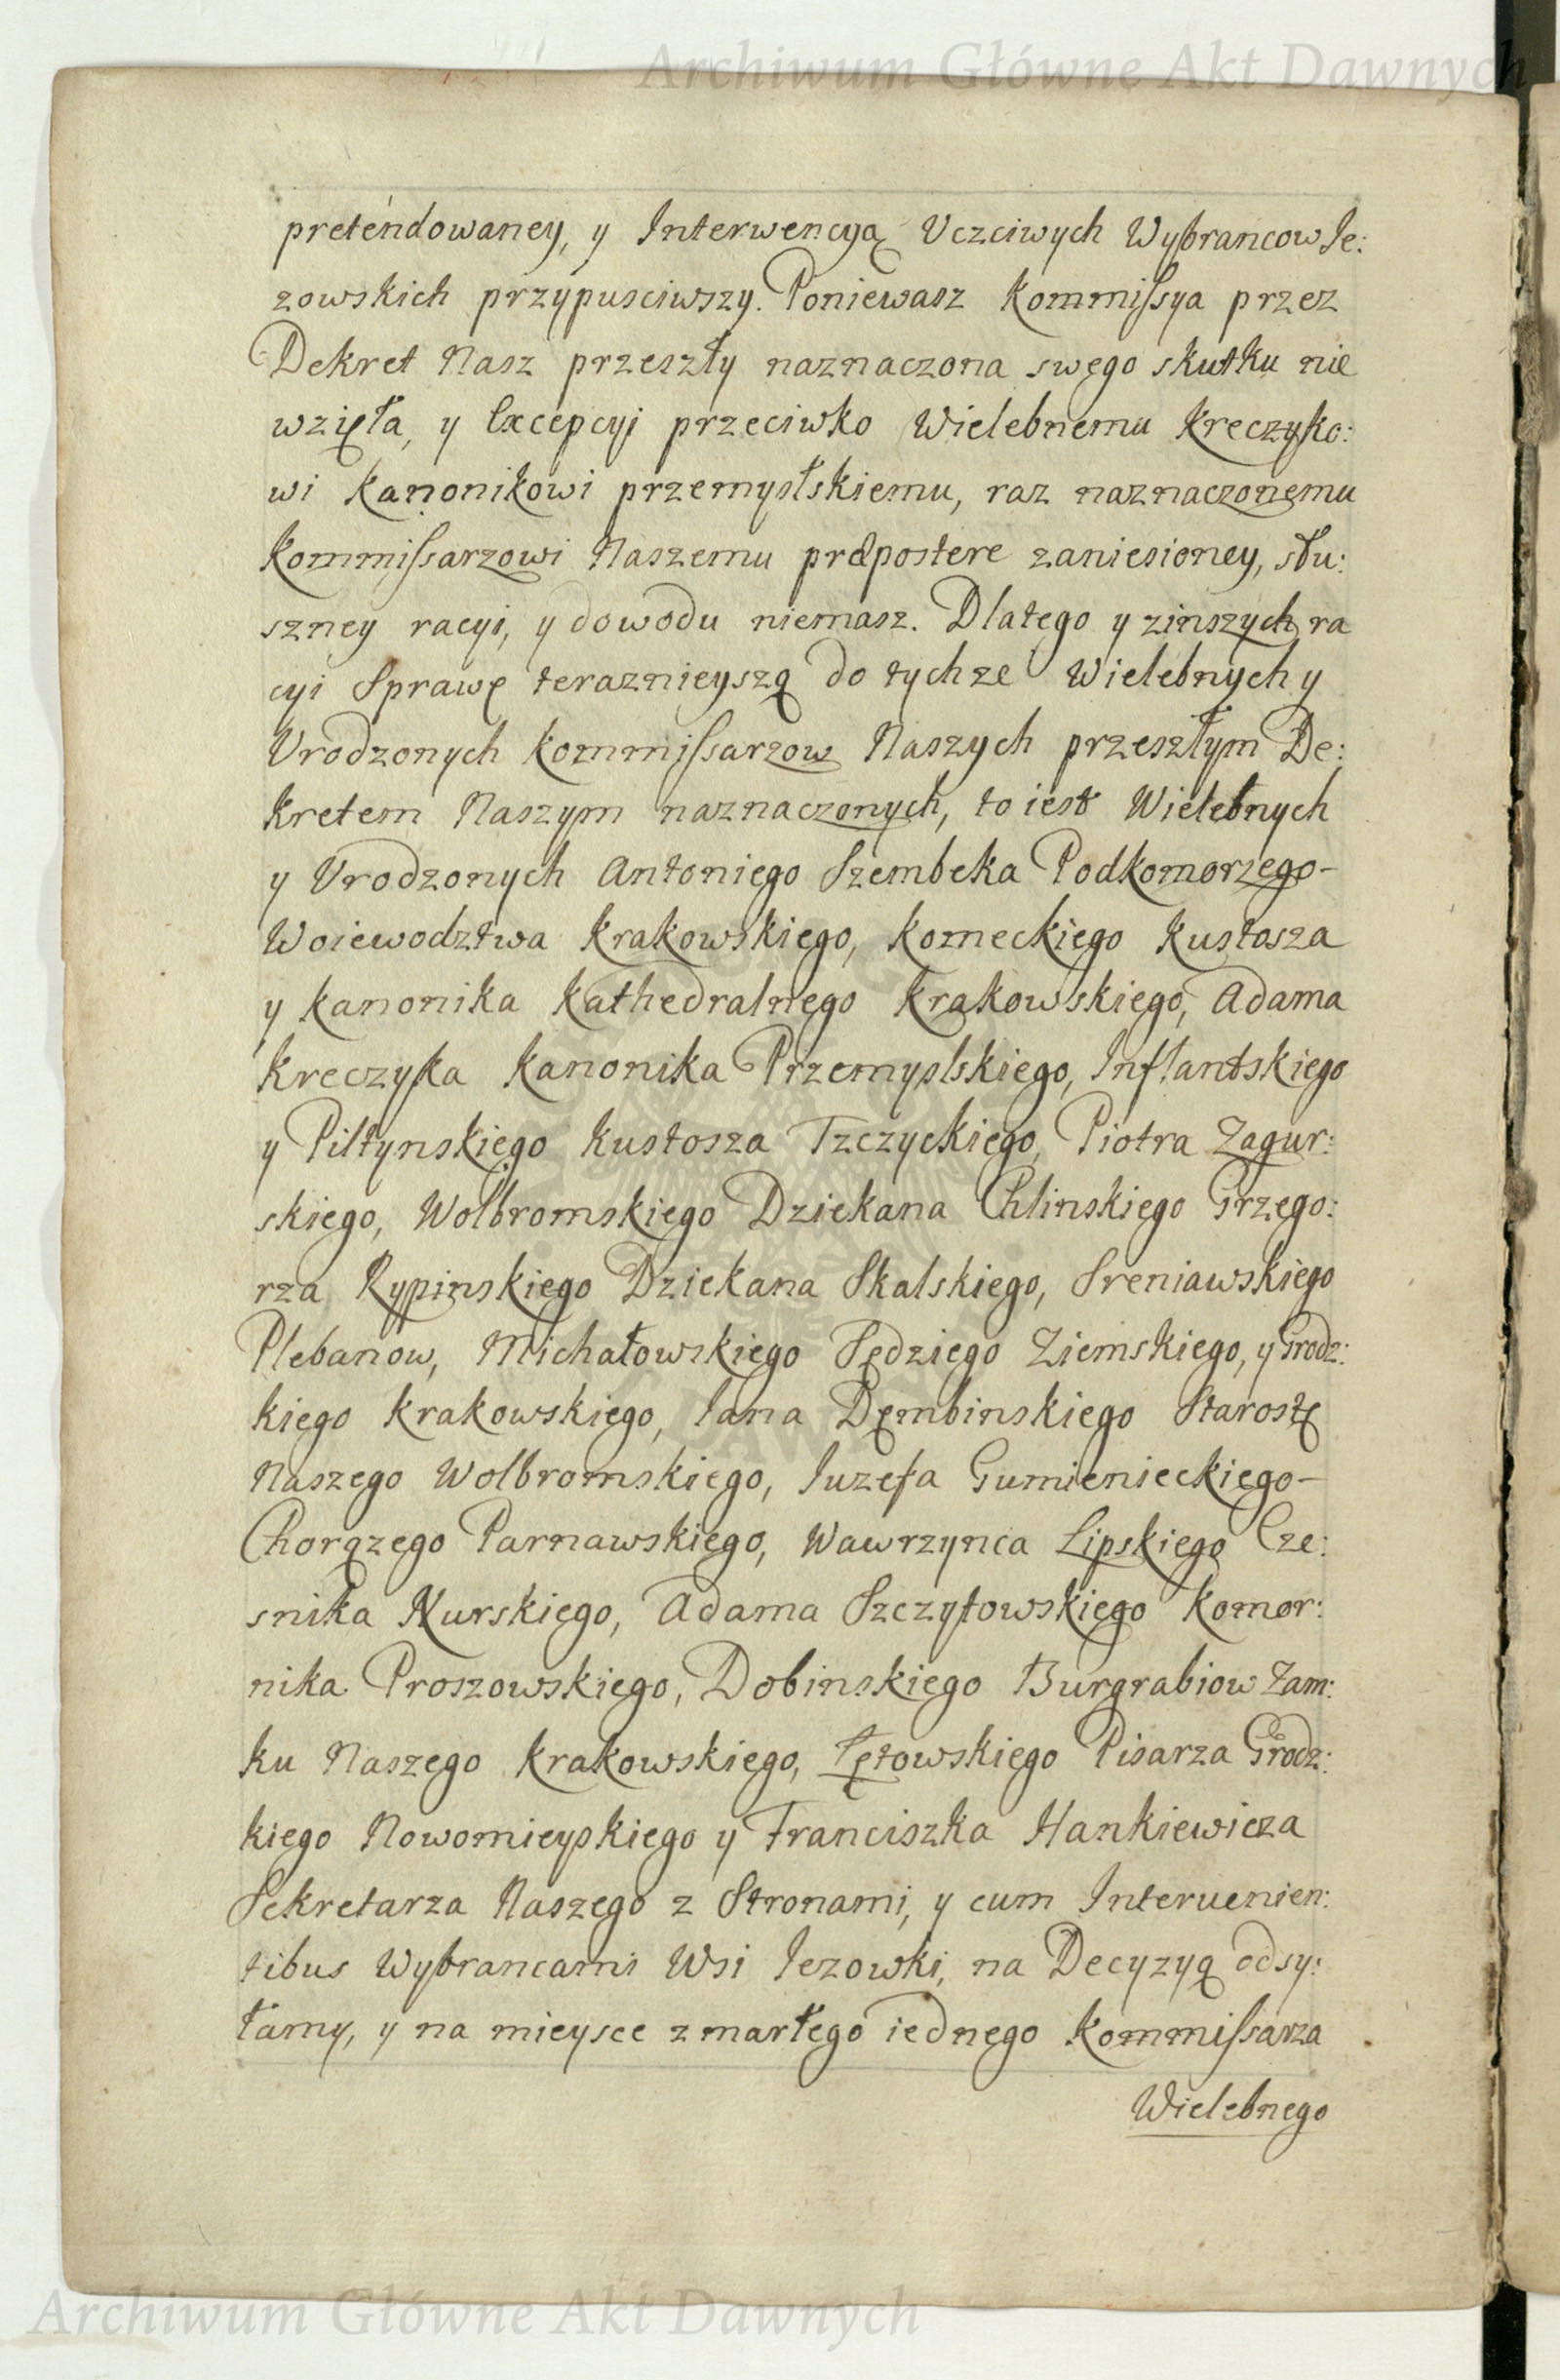 Archiwum Główne Akt Dawnych
preténdowaney, y Interwencyą Uczciwych Wybrancow Ie:
zowskich przypusciwszy. Poniewasz Kommissya przez
Dekret Nasz przeszły naznaczona swego skutku nie
wzięła, y Excepcyi przeciwko Wielebnemu Kreczyko:
wi Kanonikowi przemysłskiemu, raz naznaczonemu
Kommissarzowi Naszemu præpostere zaniesioney, słu:
szney racyi, y dowodu niemasz. Dlatego y zinszych ra
cyi Sprawę teraznieyszą do tychze Wielebnych y
Urodzonych Kommissarzow Naszych przeszłym De:
kretem Naszym naznaczonych, to iest Wielebnych
y Urodzonych Antoniego Szembeka Podkomorzego-
Woiewodztwa Krakowskiego, Komeckiego Kustosza
y Kanonika Kathedralnego Krakowskiego, Adama
Kreczyka Kanonika Przemyslskiego, Inflantskiego
y Piltynskiego Kustosza Tzczyckiego, Piotra Zagur:
skiego, Wolbromskiego Dziekana Chlinskiego Grzego:
rza Rypinskiego Dziekana Skalskiego, Sreniawskiego
Plebanow, Michałowskiego Sędziego Ziemskiego, y Grodz:
kiego Krakowskiego, Iana Dębmbinskiego Starostę
Naszego Wolbromskiego, Iuzefa Gumienieckiego-
Chorązego Parnawskiego, Wawrzynca Lipskiego Cze:
snika Nurskiego, Adama Szczytowskiego Komor:
nika Proszowskiego, Dobinskiego Burgrabiow Zam:
ku Naszego Krakowskiego, Łętowskiego Pisarza Grodz:
kiego Nowomieyskiego y Franciszka Hankiewicza
Sekretarza Naszego z Stronami, y cum Interuenien:
tibus Wybrancami Wsi Iezowki, na Decyzyą odsy:
łamy, y na mieysce zmarłego iednego Kommissarza
Wielebnego
Archiwum Główne Akt Dawnych